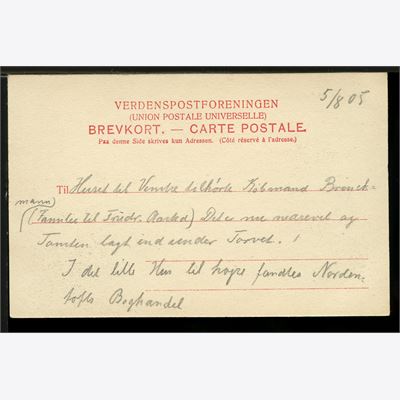 5/8 05
VERDENSPOSTFORENINGEN
(UNION POSTALE UNIVERSELLE)
BREVKORT. — CARTE POSTALE.
Paa denne Side skrives kun Adressen. (Côté réservé à l'adresse.)
Til Huset til Venstre tilhørte Købmand
mann) (Familie til Aarted) Det er nu nærevet og
Tomten lagt ind under Torvet.
I det lille Hus til højre fandtes Norden-
tofts Boghandel